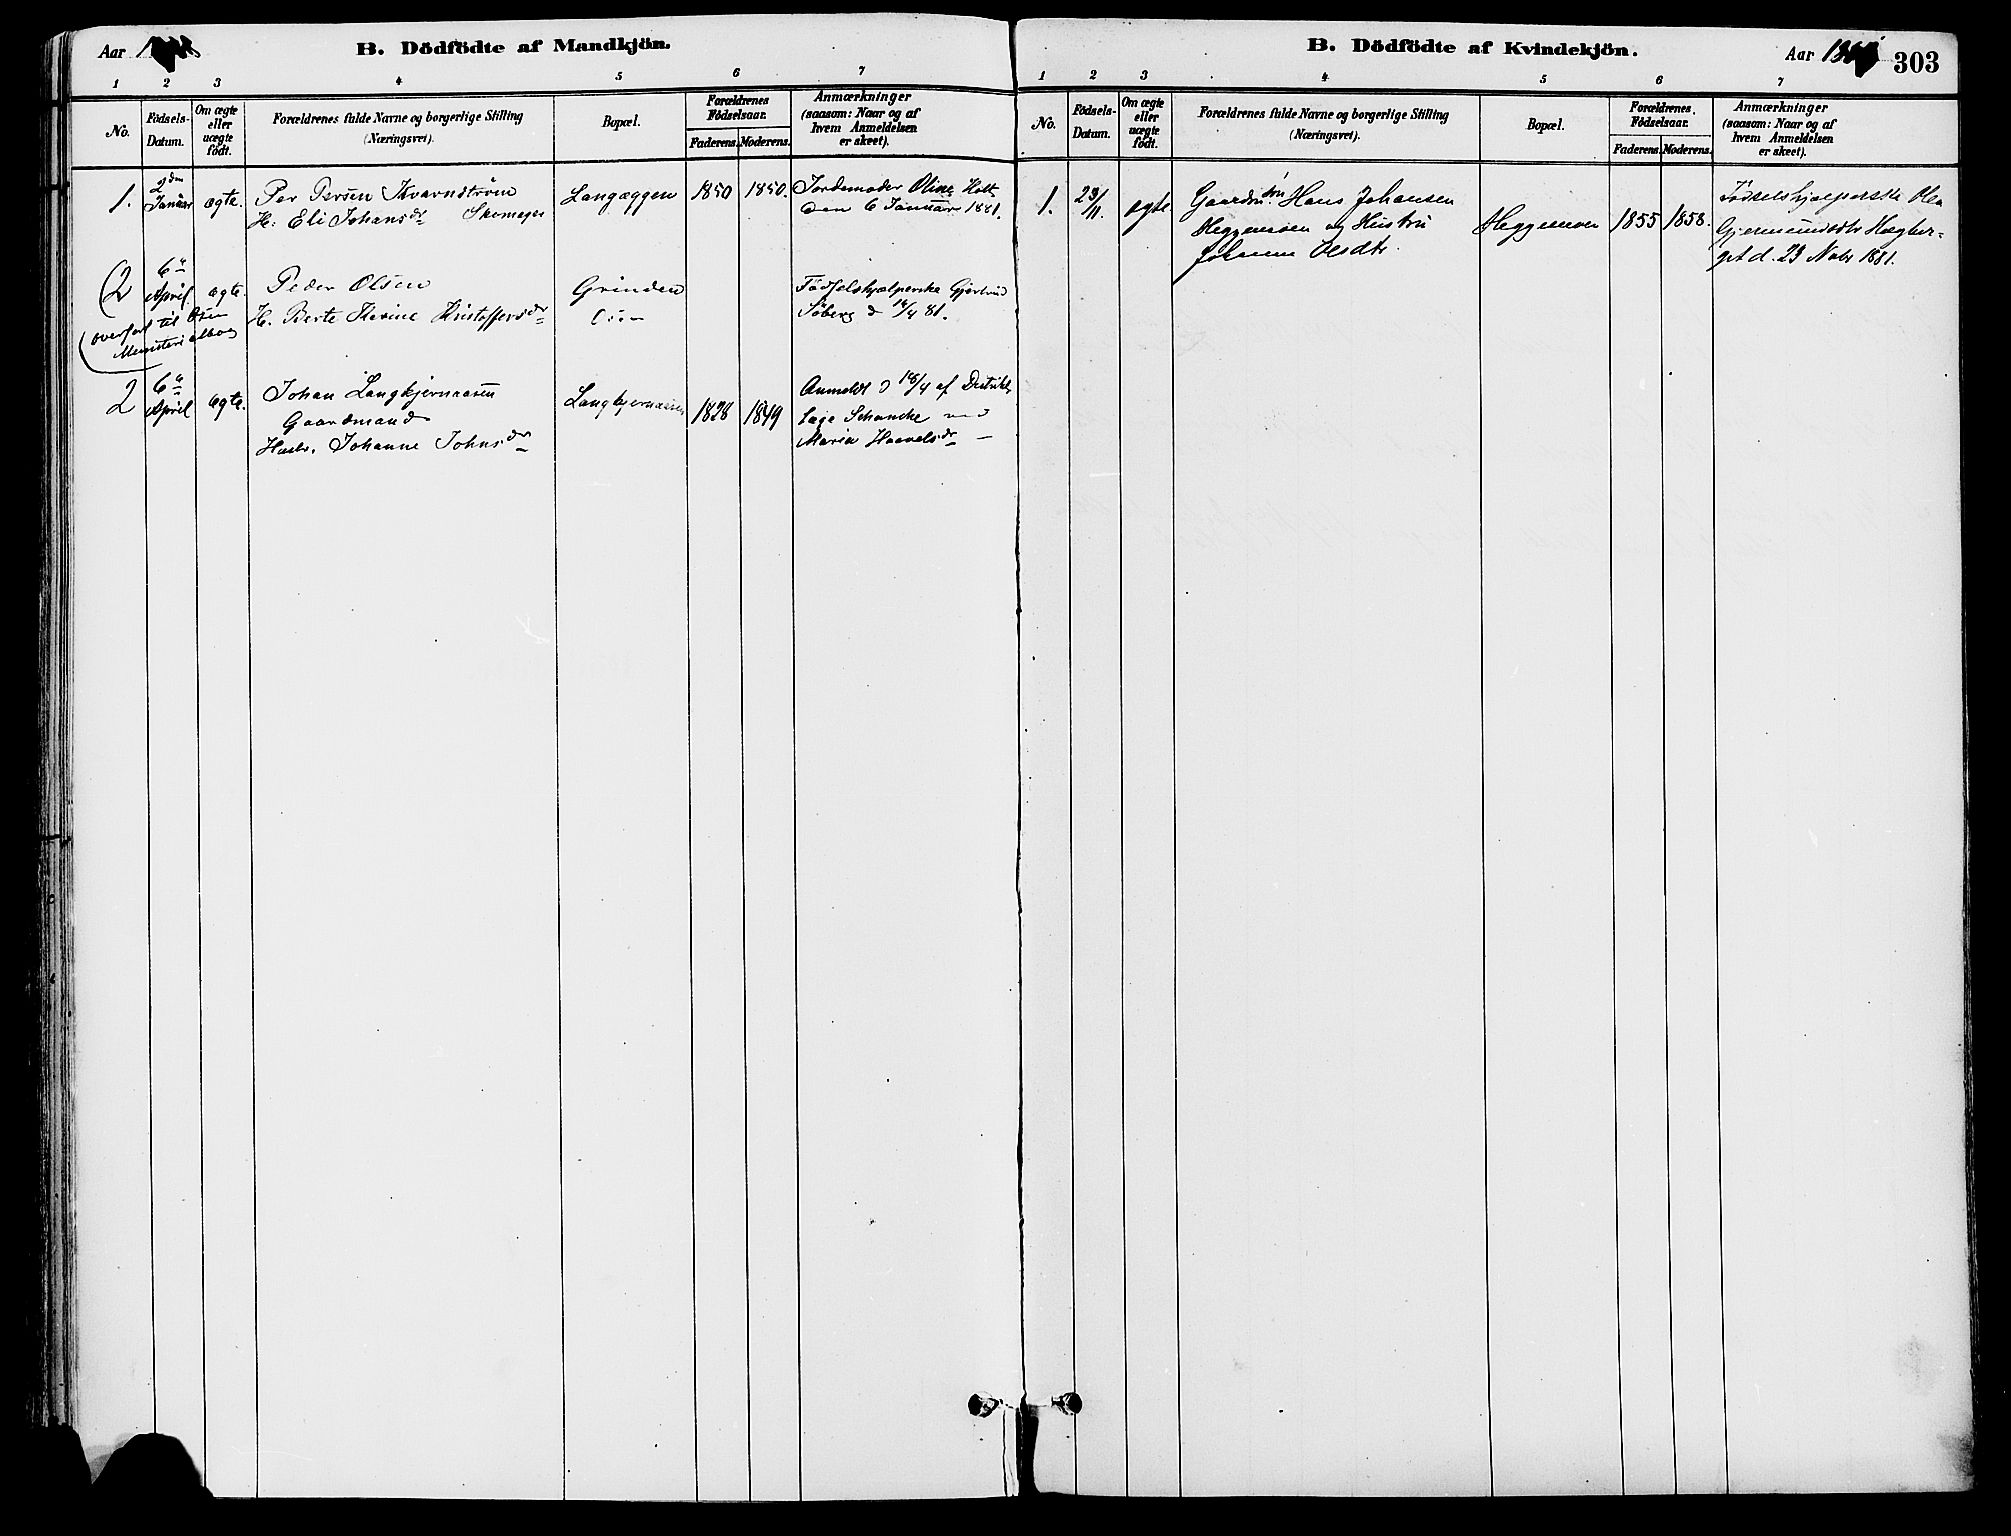 Aar
B. Dödfödte af Mandkjön.
1 2 3 4 5 6 7
No.
Födsels-
Datum.
Om ægte
eller
uægte
födt.
Forældrenes fulde Navne og borgerlige Stilling
(Næringsvei).
Bopæl.
Forældrenes
Födselsaar.
Faderens. Moderens.
Anmærkninger
(saasom: Naar og af
hvem Anmeldelsen
er skeet).
1. 2den Januar ægte. Per Persen Kvarnström Langæggen 1850 1850. Jordemoder Oline Holt
H: Eli Johansdr Skomager den 6 Januar 1881.
(2 6te April ægte. Peder Olsen Grinden Födselshjælperske Gjertrud
H. Berte Karine Kristoffersdr Osen Söberg d 16/4 81.
(overfört til Osen
Ministerialbog
2 6te April ægte. Johan Langkjernaasen Langkjernaasen 1828 1849 Anmeldt d 18/4 af Distrikts
Gaardmand læge Schancke ved
Hustr. Johanne Johnsdr Maria Haavelsdr
B. Dödfödte af Kvindekjön.
Aar
303
1 2 3 4 5 6 7
No.
Födsels-
Datum.
Om ægte
eller
uægte
födt.
Forældrenes fulde Navne og borgerlige Stilling
(Næringsvei).
Bopæl.
Forældrenes
Födselsaar.
Faderens. Moderens.
Anmærkninger
(saasom: Naar og af
hvem Anmeldelsen
er skeet).
1. 23/11 ægte Hans Johansen Heggemoen 1855 1858. Födselshjælperske Olea
Heggemoen og Hustru
Johanne Olsdtr. d. 23 Novbr 1881.